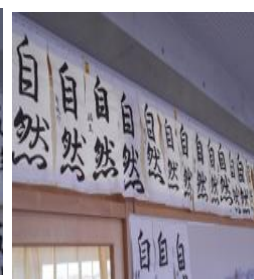 自然
自然
自然
自然
自然
自然
自然
自然
自然
自然
自然
自
自
自